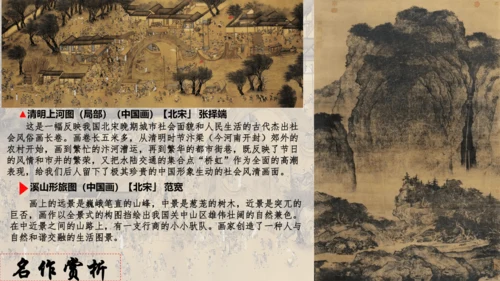 ▲清明上河图（局部）（中国画）【北宋】 张择端
这是一幅反映我国北宋晚期城市社会面貌和人民生活的古代杰出社会风俗画长卷。画卷长五米多，从清明时节汴梁（今河南开封）郊外的农村开始，画到繁忙的汴河漕运，再到繁华的都市街巷，既反映了节日的风情和市井的繁荣，又把水陆交通的集合点“桥虹”作为全画的高潮表现，给我们后人留下了极其珍贵的中国形象生动的社会风清画面。
溪山形旅图（中国画）【北宋】 范宽
画上的远景是巍峨笔直的山峰，中景是葱茏的树木，近景是突兀的巨石，画作以全景式的构图挡绘出我国关中山区雄伟壮阔的自然景色。在中近景之间的山路上，有一支行商的小小驮队。画家创造了一种人与自然和谐交融的生活图景。
名作赏析